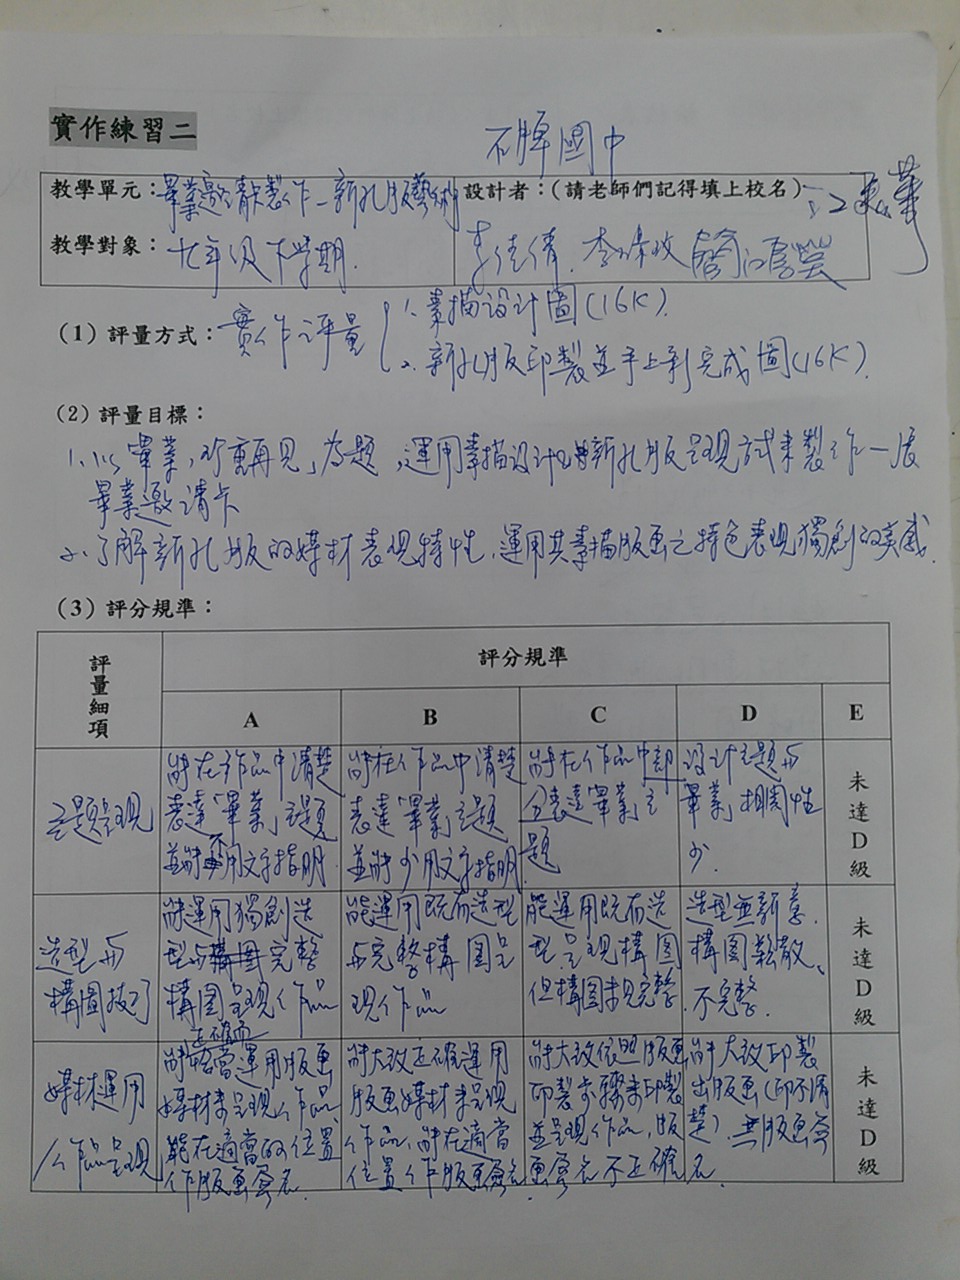 實作練習二
石牌國中
教學單元：畢業邀請卡製作－新孔版藝術 設計者：(請老師們記得填上校名)
教學對象：七年級下學期.
(1) 評量方式：實作評量 1. 素描設計圖(16K).
2. 新孔版印製並手上彩完成圖(16K).
(2) 評量目標：
1. 以「畢業，珍重再見」為題，運用素描設計與新孔版呈現方式來製作一張
畢業邀請卡
2. 了解新孔版的媒材表現特性，運用其素描版畫之特色表現獨創的美感.
(3) 評分規準：
評量細項 評分規準
A B C D E
主題呈現
能在作品中清楚
表達「畢業」主題
並能不用文字指明.
能在作品中清楚
表達「畢業」主題
並能少用文字指明.
能在作品中部
分表達「畢業」主
題
設計主題與
畢業」相關性
少.
未達D級
造型與
構圖技巧
能運用獨創造
型與完整
構圖呈現作品
能運用既有造型
與完整構圖呈
現作品
能運用既有造
型呈現構圖
但構圖未見完整.
造型無新意.
構圖鬆散、
不完整.
未達D級
媒材運用
作品呈現
正確而
能恰當運用版畫
媒材來呈現作品
能在適當的位置
作版畫簽名.
能大致正確運用
版畫媒材來呈現
作品，能在適當
位置作版畫簽名.
能大致依照版畫
印製步驟來印製
並呈現作品，版
畫簽名不正確
能大致印製
出版畫(印不清
楚). 無版畫簽
名.
未達D級